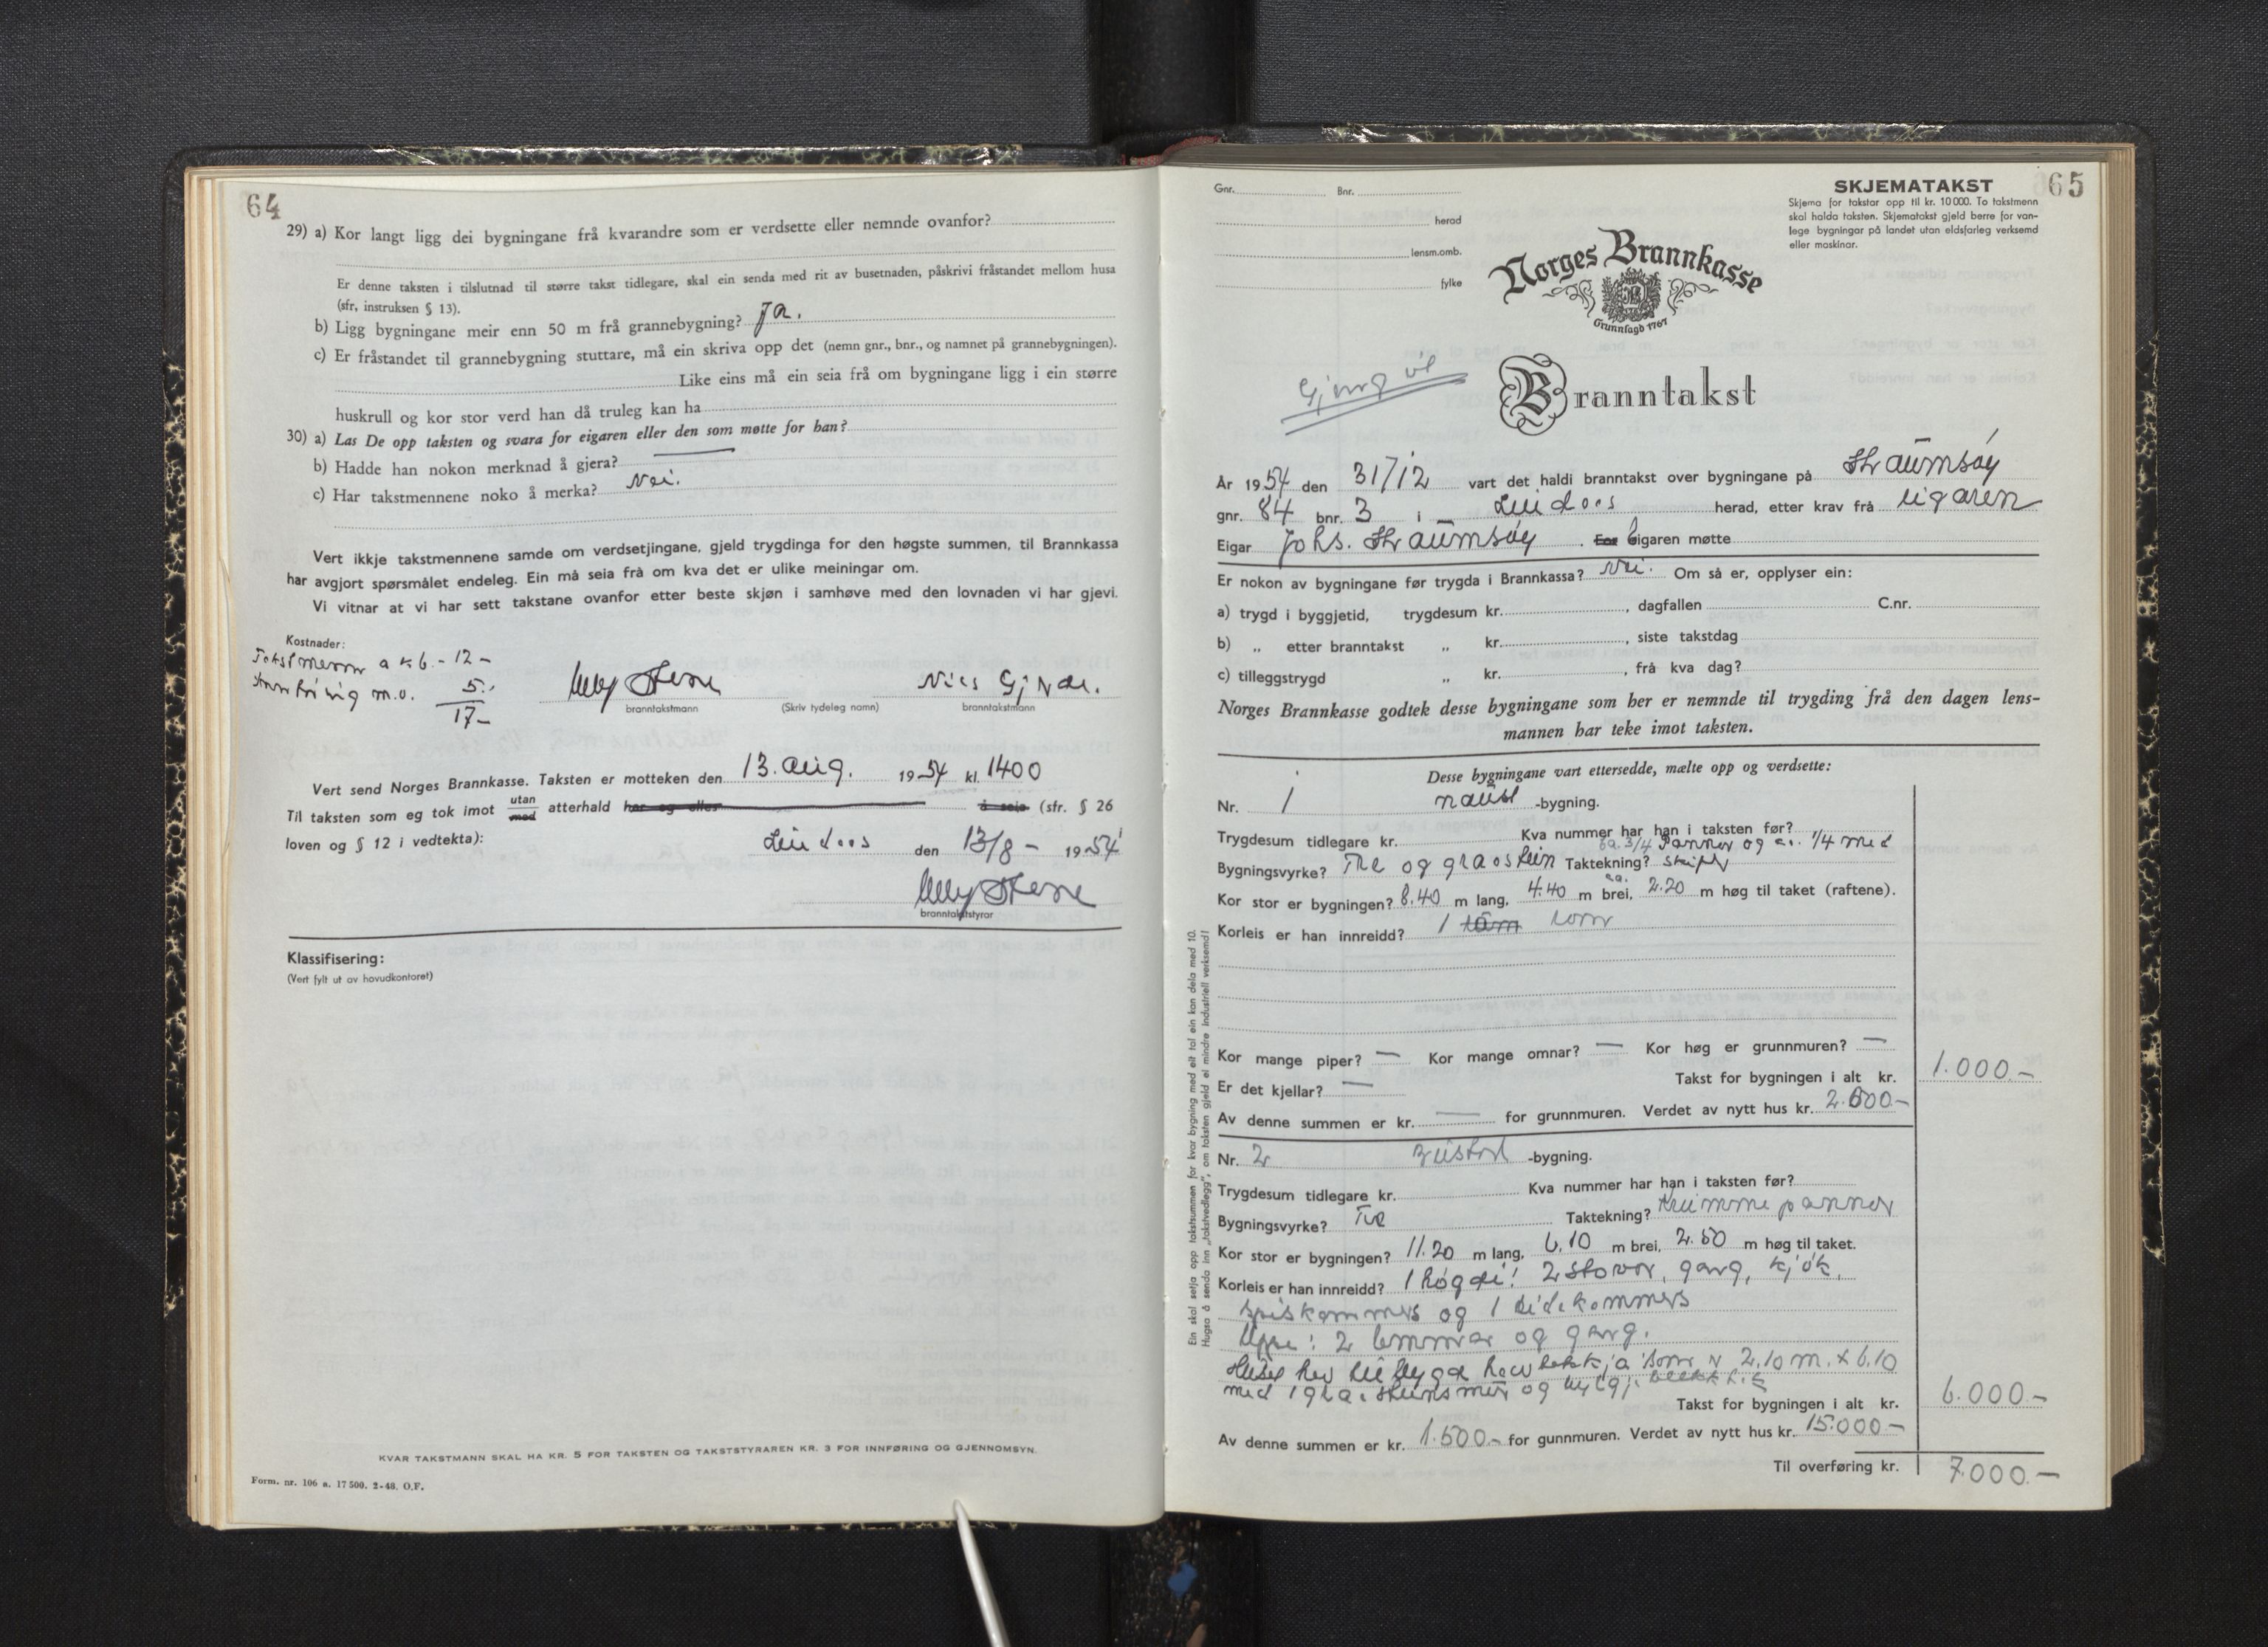 64
29) a) Kor langt ligg dei bygningane frå kvarandre som er verdsette eller nemnde ovanfor?
Er denne taksten i tilslutnad til større takst tidlegare, skal ein senda med rit av busetnaden, påskrivi fråstandet mellom husa
(sfr, instruksen § 13).
b) Ligg bygningane meir enn 50 m frå grannebygning? Ja.
c) Er fråstandet til grannebygning stuttare, må ein skriva opp det (nemn gnr., bnr., og namnet på grannebygningen).
Like eins må ein seia frå om bygningane ligg i ein større
huskrull og kor stor verd han då truleg kan ha
30) a) Las De opp taksten og svara for eigaren eller den som møtte for han?
b) Hadde han nokon merknad å gjera? —
c) Har takstmennene noko å merka? Nei.
Vert ikkje takstmennene samde om verdsetjingane, gjeld trygdinga for den høgste summen, til Brannkassa
har avgjort spørsmålet endeleg. Ein må seia frå om kva det er ulike meiningar om.
Vi vitnar at vi har sett takstane ovanfor etter beste skjøn i samhøve med den lovnaden vi har gjevi.
Kostnader:
Takstmenn a k 6.- 12 -
Innføring m.v. 5.-
17-
Nils Gjvde.
branntakstmann (Skriv tydeleg namn) branntakstmann
Vert send Norges Brannkasse. Taksten er motteken den 13. aug. 1954 kl. 1400
Til taksten som eg tok imot utan med atterhald har eg eller å seia (sfr. § 26
loven og § 12 i vedtekta):
Lindås den 13/8 - 1954
branntakststyrar
Klassifisering:
(Vert fylt ut av hovudkontoret)
KVAR TAKSTMANN SKAL HA KR. 5 FOR TAKSTEN OG TAKSTSTYRAREN KR. 3 FOR INNFØRING OG GJENNOMSYN.
Form. nr. 106 a. 17500. 2-48. O.F.
65
Gnr. Bnr.
herad
lensm.omb.
fylke
SKJEMATAKST
Skjema for takstar opp til kr. 10 000. To takstmenn
skal halda taksten. Skjematakst gjeld berre for van-
lege bygningar på landet utan eldsfarleg verksemd
eller maskinar.
Norges Brannkasse
Grunnlagd 1767
Branntakst
År 1954 den 31/12 vart det haldi branntakst over bygningane på Straumsøy
gnr. 84 bnr. 3 i Lindoos herad, etter krav frå eigaren
Eigar Johs. Straumsøy. For Eigaren møtte
Er nokon av bygningane før trygda i Brannkassa? Nei. Om så er, opplyser ein:
a) trygd i byggjetid, trygdesum kr. , dagfallen C.nr.
b) „ etter branntakst „ kr. , siste takstdag
c) tilleggstrygd „ kr. , frå kva dag?
Norges Brannkasse godtek desse bygningane som her er nemnde til trygding frå den dagen lens-
mannen har teke imot taksten.
Desse bygningane vart ettersedde, mælte opp og verdsette:
Nr. 1 naust -bygning.
Trygdesum tidlegare kr. Kva nummer har han i taksten før?
Bygningsvyrke? Tre og graostein Taktekning? ca. 3/4 Pannor og ca. 1/4 med skifer
Kor stor er bygningen? 8.40 m lang, 4.40 m brei, ca. 2.20 m høg til taket (raftene).
Korleis er han innreidd? 1 rom
Kor mange piper? — Kor mange omnar? — Kor høg er grunnmuren? —
Er det kjellar? — Takst for bygningen i alt kr. 1.000.-
Av denne summen er kr. — for grunnmuren. Verdet av nytt hus kr. 2.600.-
Nr. 2 -bygning.
Trygdesum tidlegare kr. Kva nummer har han i taksten før?
Bygningsvyrke? Tre Taktekning? Krumme pannor
Kor stor er bygningen? 11.20 m lang, 6.10 m brei, 2.50 m høg til taket.
Korleis er han innreidd? 1 høgdi! 2 stovor, gang, kjøk,
spiskammers og 1 sidekammers
Uppe: 2 lemmar og gang.
2.10 m. x 6.10
med
Takst for bygningen i alt kr. 6.000 -
Av denne summen er kr. 1.500.- for gunnmuren. Verdet av nytt hus kr. 15.000 -
Til overføring kr. 7.000. -
Ein skal setja opp takstsummen for kvar bygning med eit tal ein kan dela med 10.
Hugsa å senda inn „takstvedlegg", om taksten gjeld ei mindre industriell verksemd!